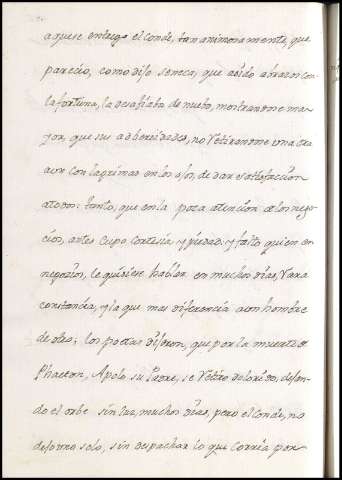 aquese entrego el Conde, tan animosamente, que
parecio, como dijo seneca, que asido abrazos con
la fortuna, la desafiaba de nuebo, mostrandose ma-
yor, que sus adbersidades, no Retirandose una ora
aun con lagrimas en los ojos, de dar satisfaccion
atodos: tanto, que en la poca atencion a los nego-
cios, antes cupo cortesia, y piedad: y falto quien en
negozios, le quisiese hablar en muchos dias, Rara
constancia, y la que mas diferencia a un hombre
de otro; los poetas dijeron, que por la muerte de
Phaeton, Apolo su Padre, se Retiro dolorido, dejan-
do el orbe sin luz, muchos dias, pero el Conde, no
dejo uno solo, sin despachar lo que corria por